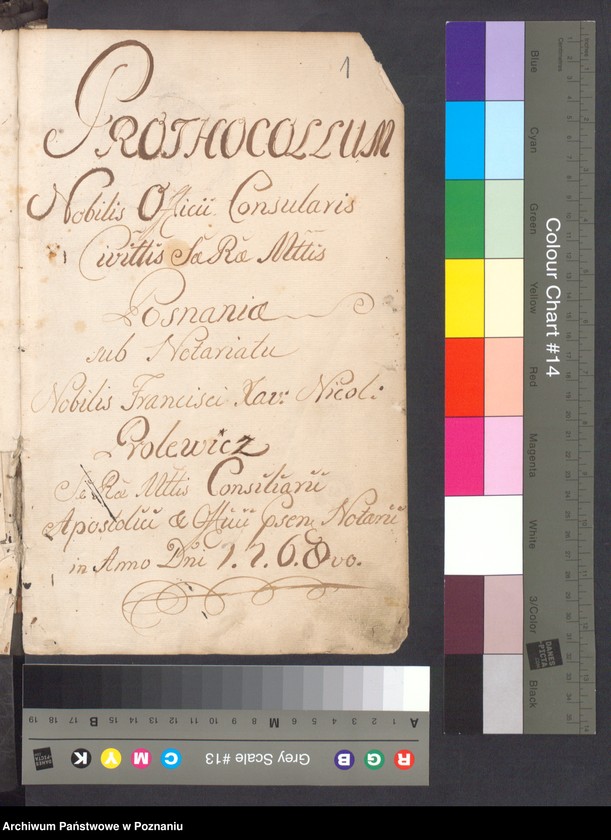 1
PROTHOCOLLUM
Nobilis Officii Consularis
Civittis Sæ Ræ Mttis
Posnaniæ
sub Notariatu
Nobilis Francisci Xav: Nicol:
Prolewicz
Sæ Ræ Mttis Consiliarii
Officii Notarii
in Anno Dni 1.7.6.8vo.
Colour Chart #14
Blue
Cyan
Green
Yellow
Red
Magenta
White
3/Color
Black
Centimetres
Inches
DANES
PICTA
.COM
Grey Scale #13
R G B C M Y K
A 1 2 3 4 5 6 M 8 9 10 11 12 13 14 15 B 17 18 19
Archiwum Państwowe w Poznaniu